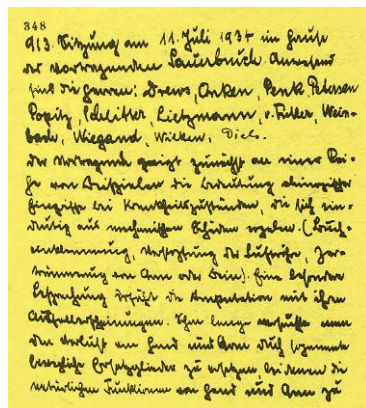 348
913. Sitzung am 11. Juli 1934 im Hause
des Vortragenden Sauerbruch. Anwesend
sind die Herren: Drews, Oncken, Penk, Petersen
Popitz, Schlitter, Lietzmann, v. Ficker, Wein-
bach, Wiegand, Wilcken, Diels.
Der Vortragende zeigt zunächst an einer Rei-
he von Beispielen die Bedeutung chirurgischer
Eingriffe bei Krankheitszuständen, die sich ein-
deutig aus mechanischen Schäden ergeben. (Bruch-
einklemmung, Verstopfung der Luftröhre, Zer-
trümmerung von Arm oder Bein). Eine besondere
Besprechung erfährt die Amputation mit ihren
Ausfallerscheinungen. Schon lange versuchte man
den Verlust von Hand und Arm durch sogenannte
bewegliche Ersatzglieder zu ersetzen, bei denen die
natürlichen Funktionen von Hand und Arm zu